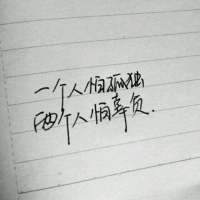 一个人怕孤独
两个人怕辜负.